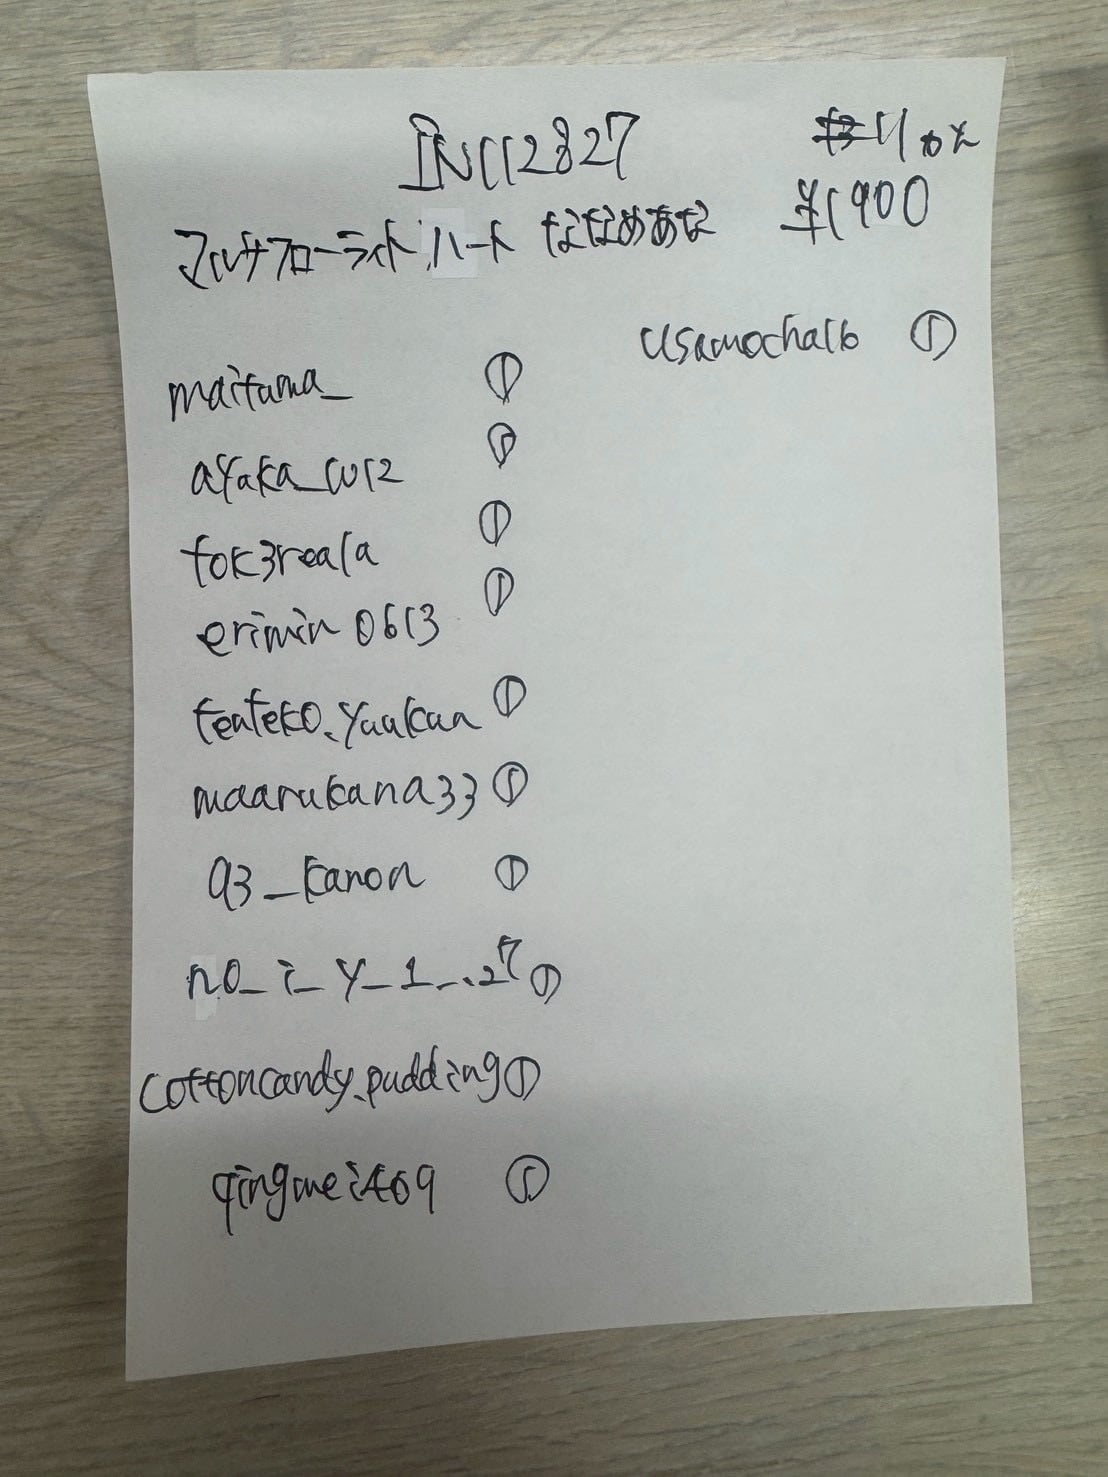 IN112827
11コメ
マルチフローライト ハート ななめあな ¥1900
maitama_ ①
ayaka_w12 ①
tok3reala ①
erimin0613 ①
tenteko.yuukan ①
maarukana33 ①
93_kanon ①
no_i_y_1_.27 ①
cottoncandy.pudding ①
qingmei469 ①
usamocha16 ①